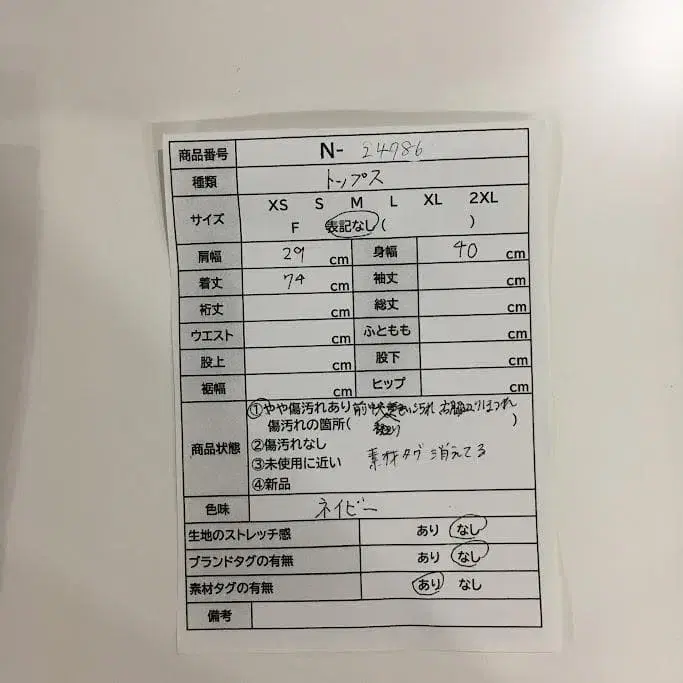 商品番号 N- 24986
種類 トップス
サイズ XS S M L XL 2XL
F 表記なし( )
肩幅 29 cm 身幅 40 cm
着丈 74 cm 袖丈 cm
裄丈 cm 総丈 cm
ウエスト cm ふともも cm
股上 cm 股下 cm
裾幅 cm ヒップ cm
商品状態 ①やや傷汚れあり 汚れ
傷汚れの箇所( )
②傷汚れなし
③未使用に近い 素材タグ消えてる
④新品
色味 ネイビー
生地のストレッチ感 あり なし
ブランドタグの有無 あり なし
素材タグの有無 あり なし
備考